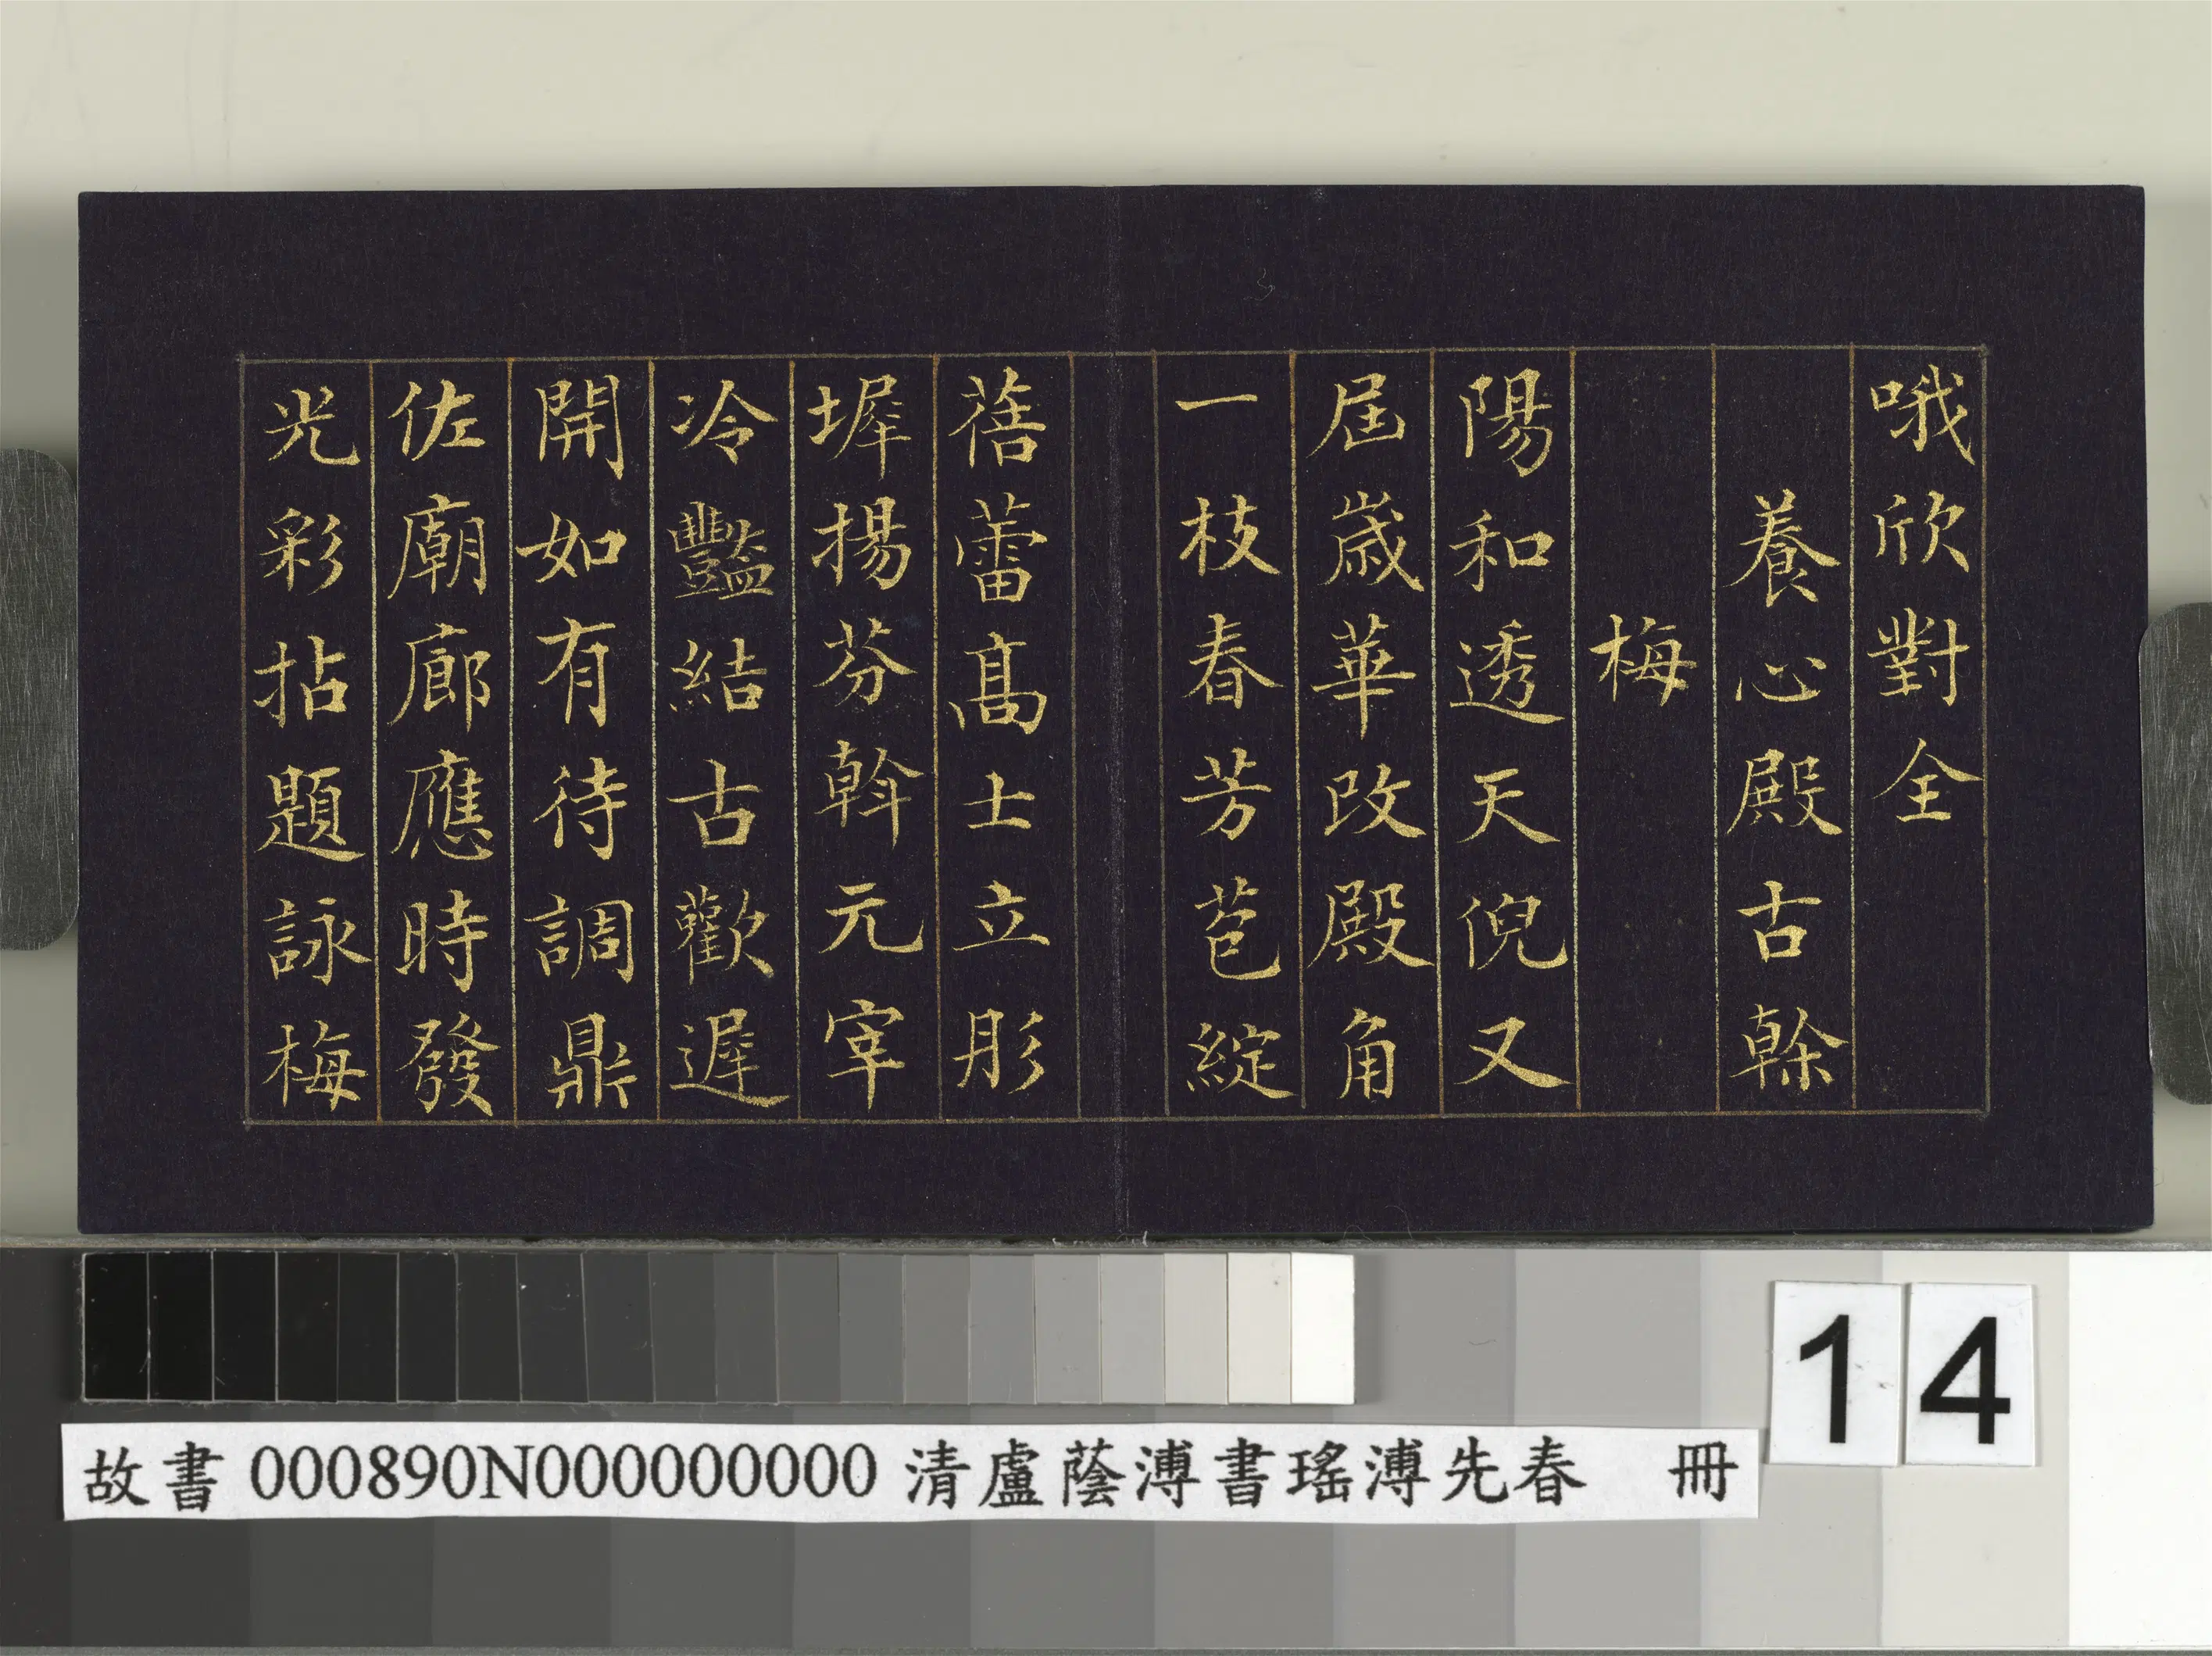 哦欣對全
養心殿古榦
梅
陽和透天倪又
屆歲華改殿角
一枝春芳苞綻
蓓蕾高士立彤
墀揚芬斡元宰
冷豔結古歡遲
開如有待調鼎
佐廟廊應時發
光彩拈題詠梅
14
故書 000890N000000000 清盧蔭溥書瑤溥先春 冊